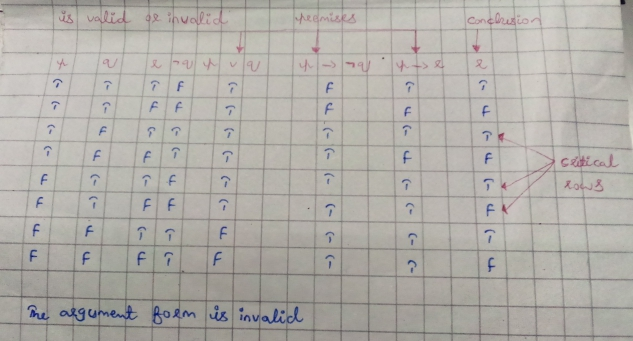 is valid or invalid premises conclusion
p q r ¬q p v q p → ¬q p → r r
T T T F T F T T
T T F F T F F F
T F T T T T T T
T F F T T T F F critical
F T T F T T T T rows
F T F F T T T F
F F T T F T T T
F F F T F T T F
The argument form is invalid